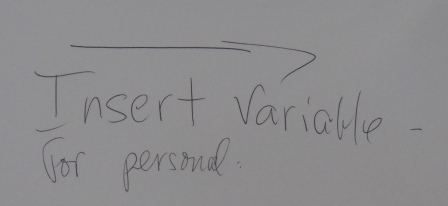 Insert Variable -
for personal.